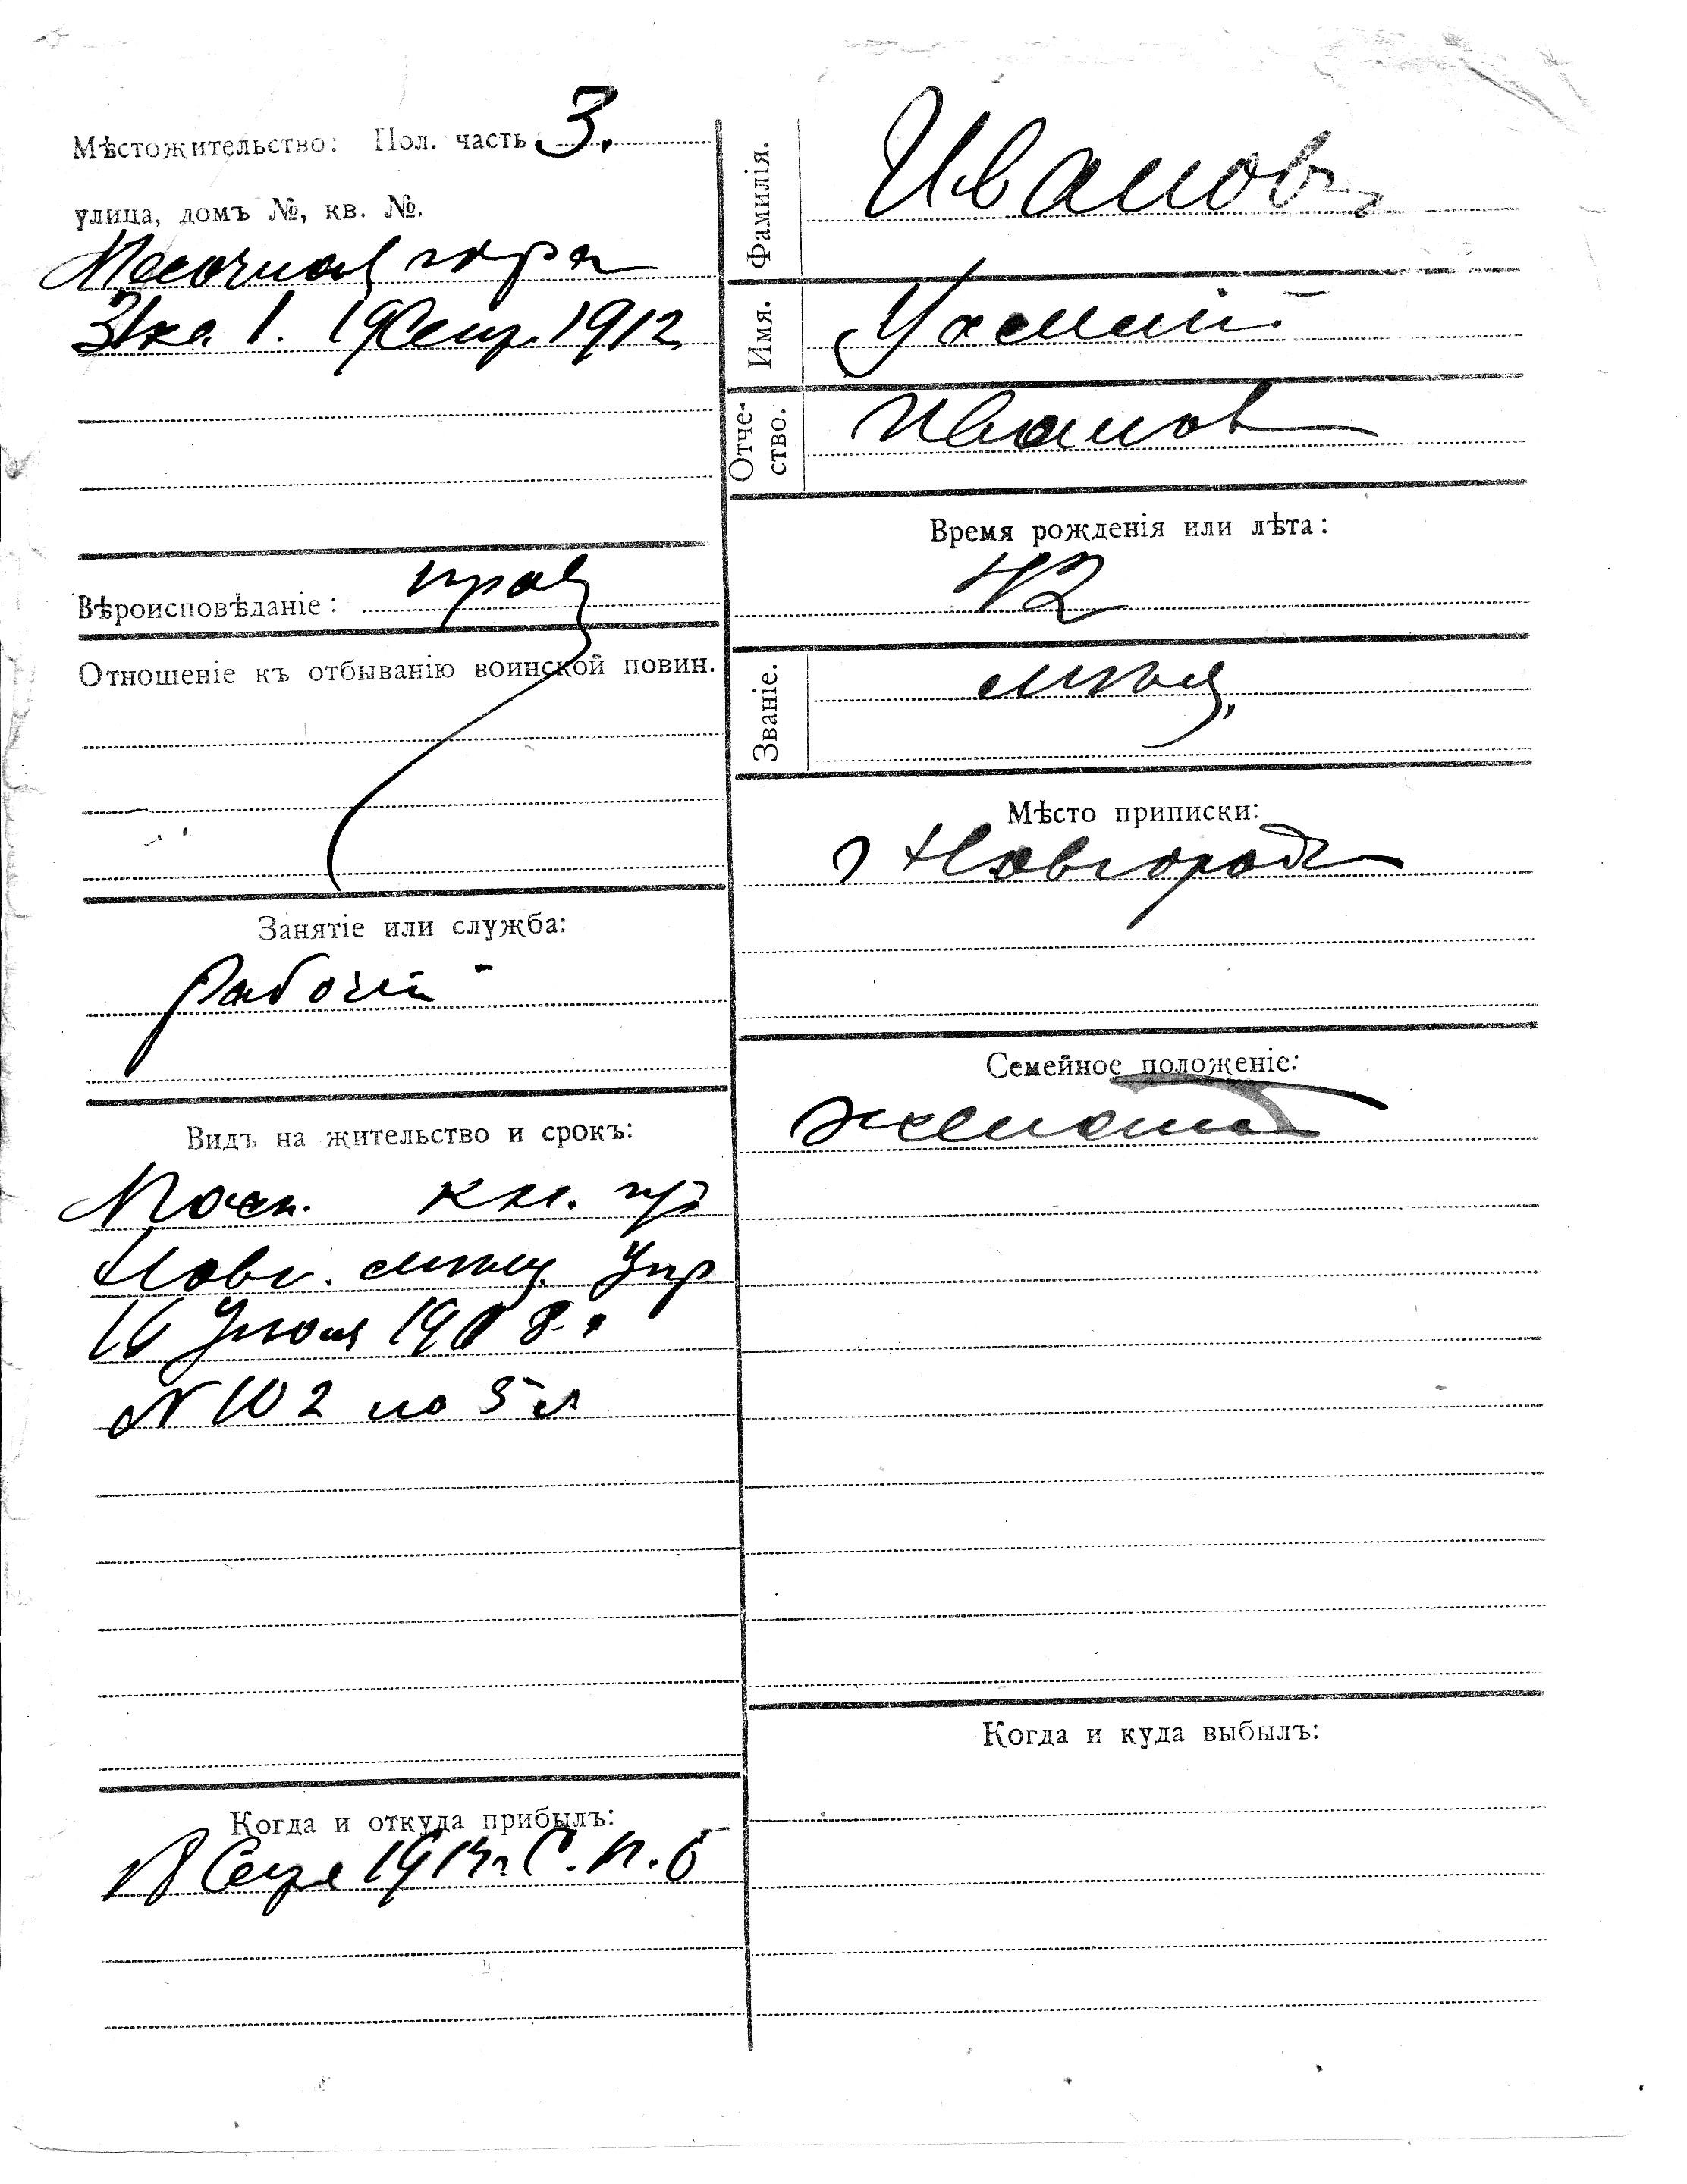 Мѣстожительство: Пол. часть 3.
улица, домъ №, кв. №.
Песочная гора
31 кв. 1. 19 Сент. 1912
Вѣроисповѣданіе: прав
Отношеніе къ отбыванію воинской повин.
Занятіе или служба:
Рабочій
Видъ на жительство и срокъ:
Посп. кн.
Новг. мѣщ. Упр
16 Іюля 1908 г
№ 102 на 5 л
Когда и откуда прибылъ:
С. П. Б
Фамилія. Ивановъ
Имя.
Отчество. Иванов
Время рожденія или лѣта:
42
Званіе. мѣщ.
Мѣсто приписки:
г Новгородъ
Семейное положеніе:
женатъ
Когда и куда выбылъ: